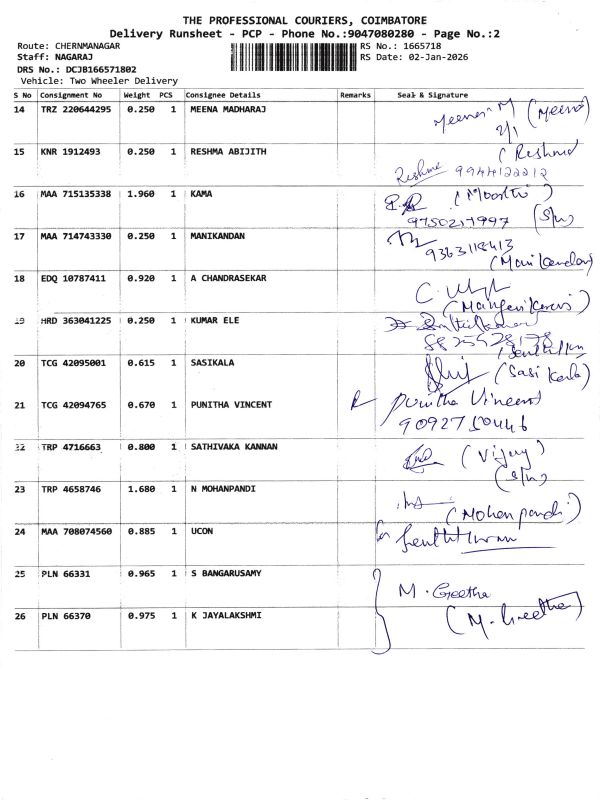 THE PROFESSIONAL COURIERS, COIMBATORE
Delivery Runsheet - PCP - Phone No.:9047080280 - Page No.:2
Route: CHERNMANAGAR
RS No.: 1665718
Staff: NAGARAJ
RS Date: 02-Jan-2026
DRS No.: DCJB166571802
Vehicle: Two Wheeler Delivery
S No Consignment No Weight PCS Consignee Details Remarks Seal & Signature
14 TRZ 220644295 0.250 1 MEENA MADHARAJ
Meena M (Meena)
2/1
15 KNR 1912493 0.250 1 RESHMA ABIJITH
(Reshma
Reshma 9944122212
16 MAA 715135338 1.960 1 KAMA
(Moorthi)
9750217997 (S/w)
17 MAA 714743330 0.250 1 MANIKANDAN
9363118413
(Manikandan)
18 EDQ 10787411 0.920 1 A CHANDRASEKAR
19 HRD 363041225 0.250 1 KUMAR ELE
20 TCG 42095001 0.615 1 SASIKALA
(Sasikala)
21 TCG 42094765 0.670 1 PUNITHA VINCENT
Punitha Vincent
9092750446
22 TRP 4716663 0.800 1 SATHIVAKA KANNAN
(Vijay)
(S/w)
23 TRP 4658746 1.680 1 N MOHANPANDI
(Mohanpandi)
24 MAA 708074560 0.885 1 UCON
for
25 PLN 66331 0.965 1 S BANGARUSAMY
M. Geetha
26 PLN 66370 0.975 1 K JAYALAKSHMI
(M. Geetha)